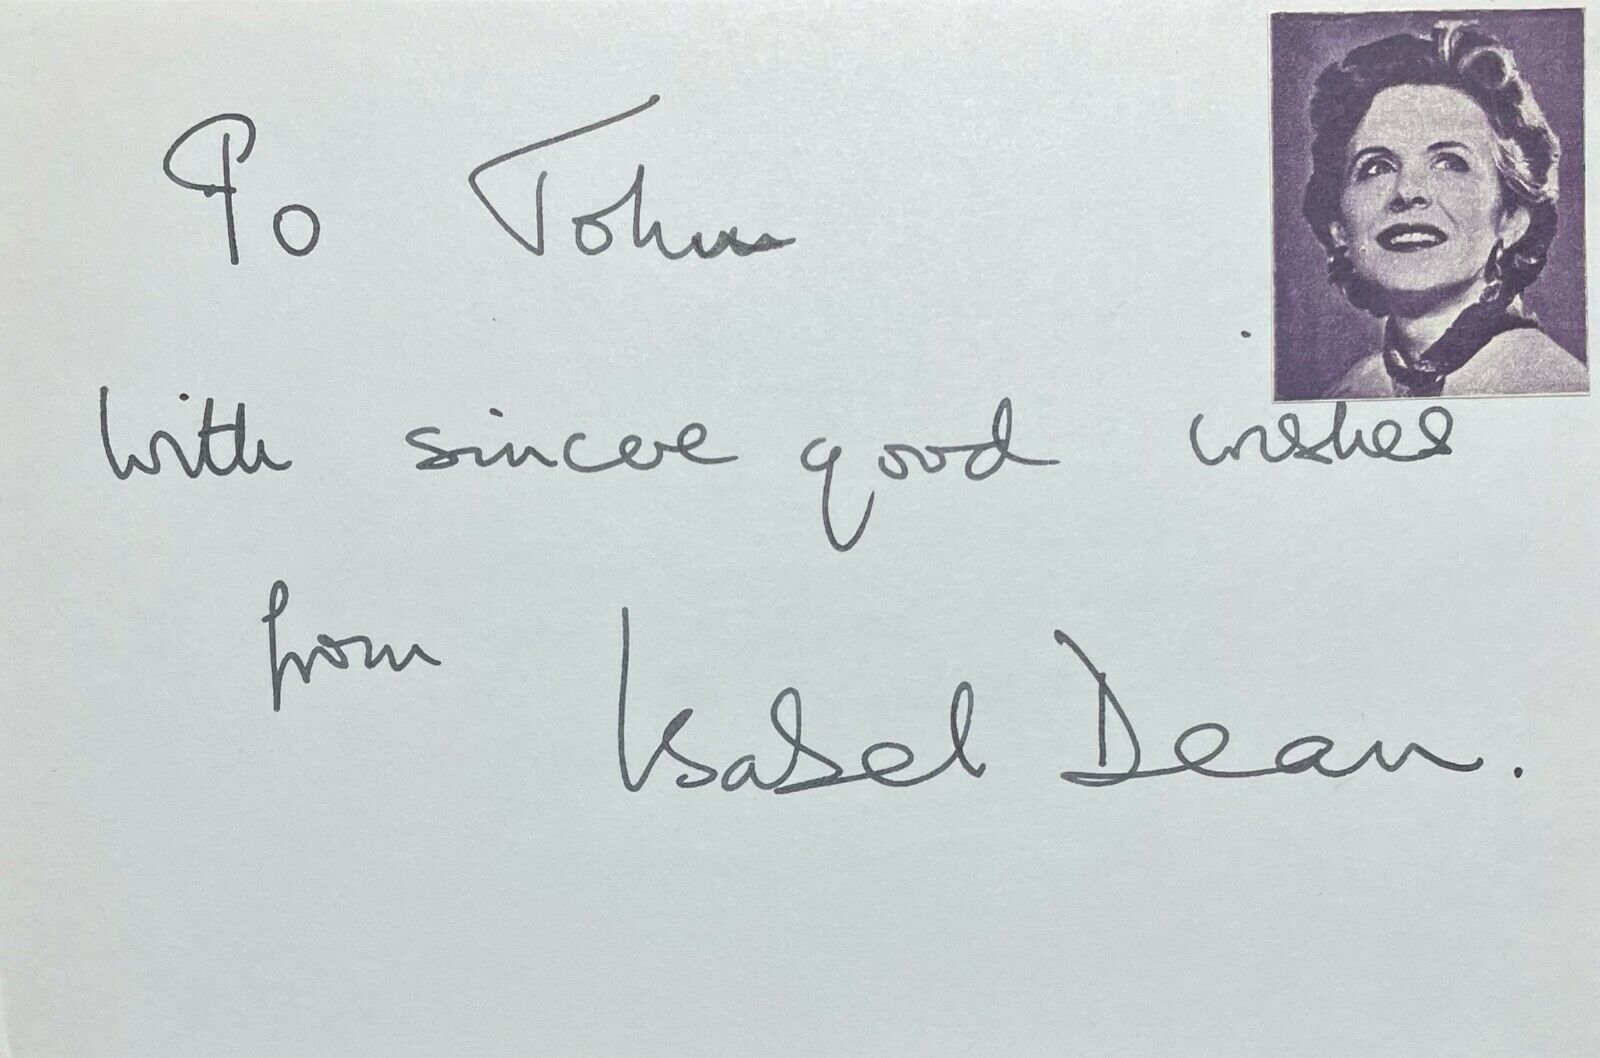 To John
with sincere good wishes
from Isabel Dean.